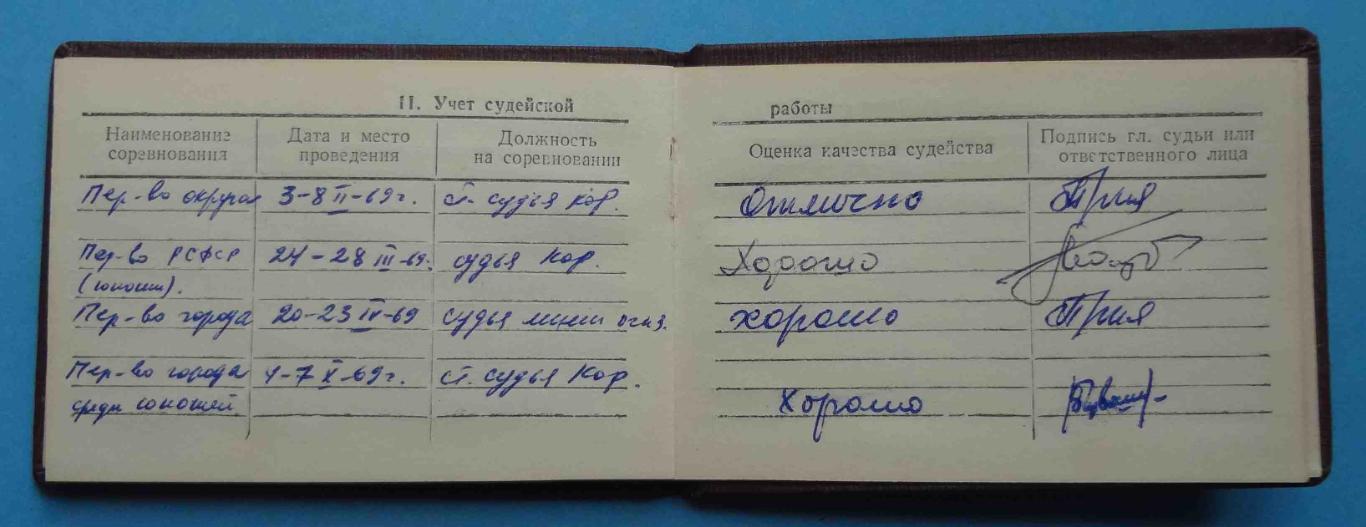 II. Учет судейской работы
Наименование соревнования
Дата и место проведения
Должность на соревновании
Оценка качества судейства
Подпись гл. судьи или ответственного лица
Пер-во округа 3-8 II-69г. ст. судья кор. Отлично
Пер-во РСФСР 24-28 III-69г. судья кор. Хорошо
(юнош).
Пер-во города 20-23 IV-69 судья линии огня. хорошо
Пер-во города 4-7 X-69г. ст. судья кор.
среди юношей Хорошо